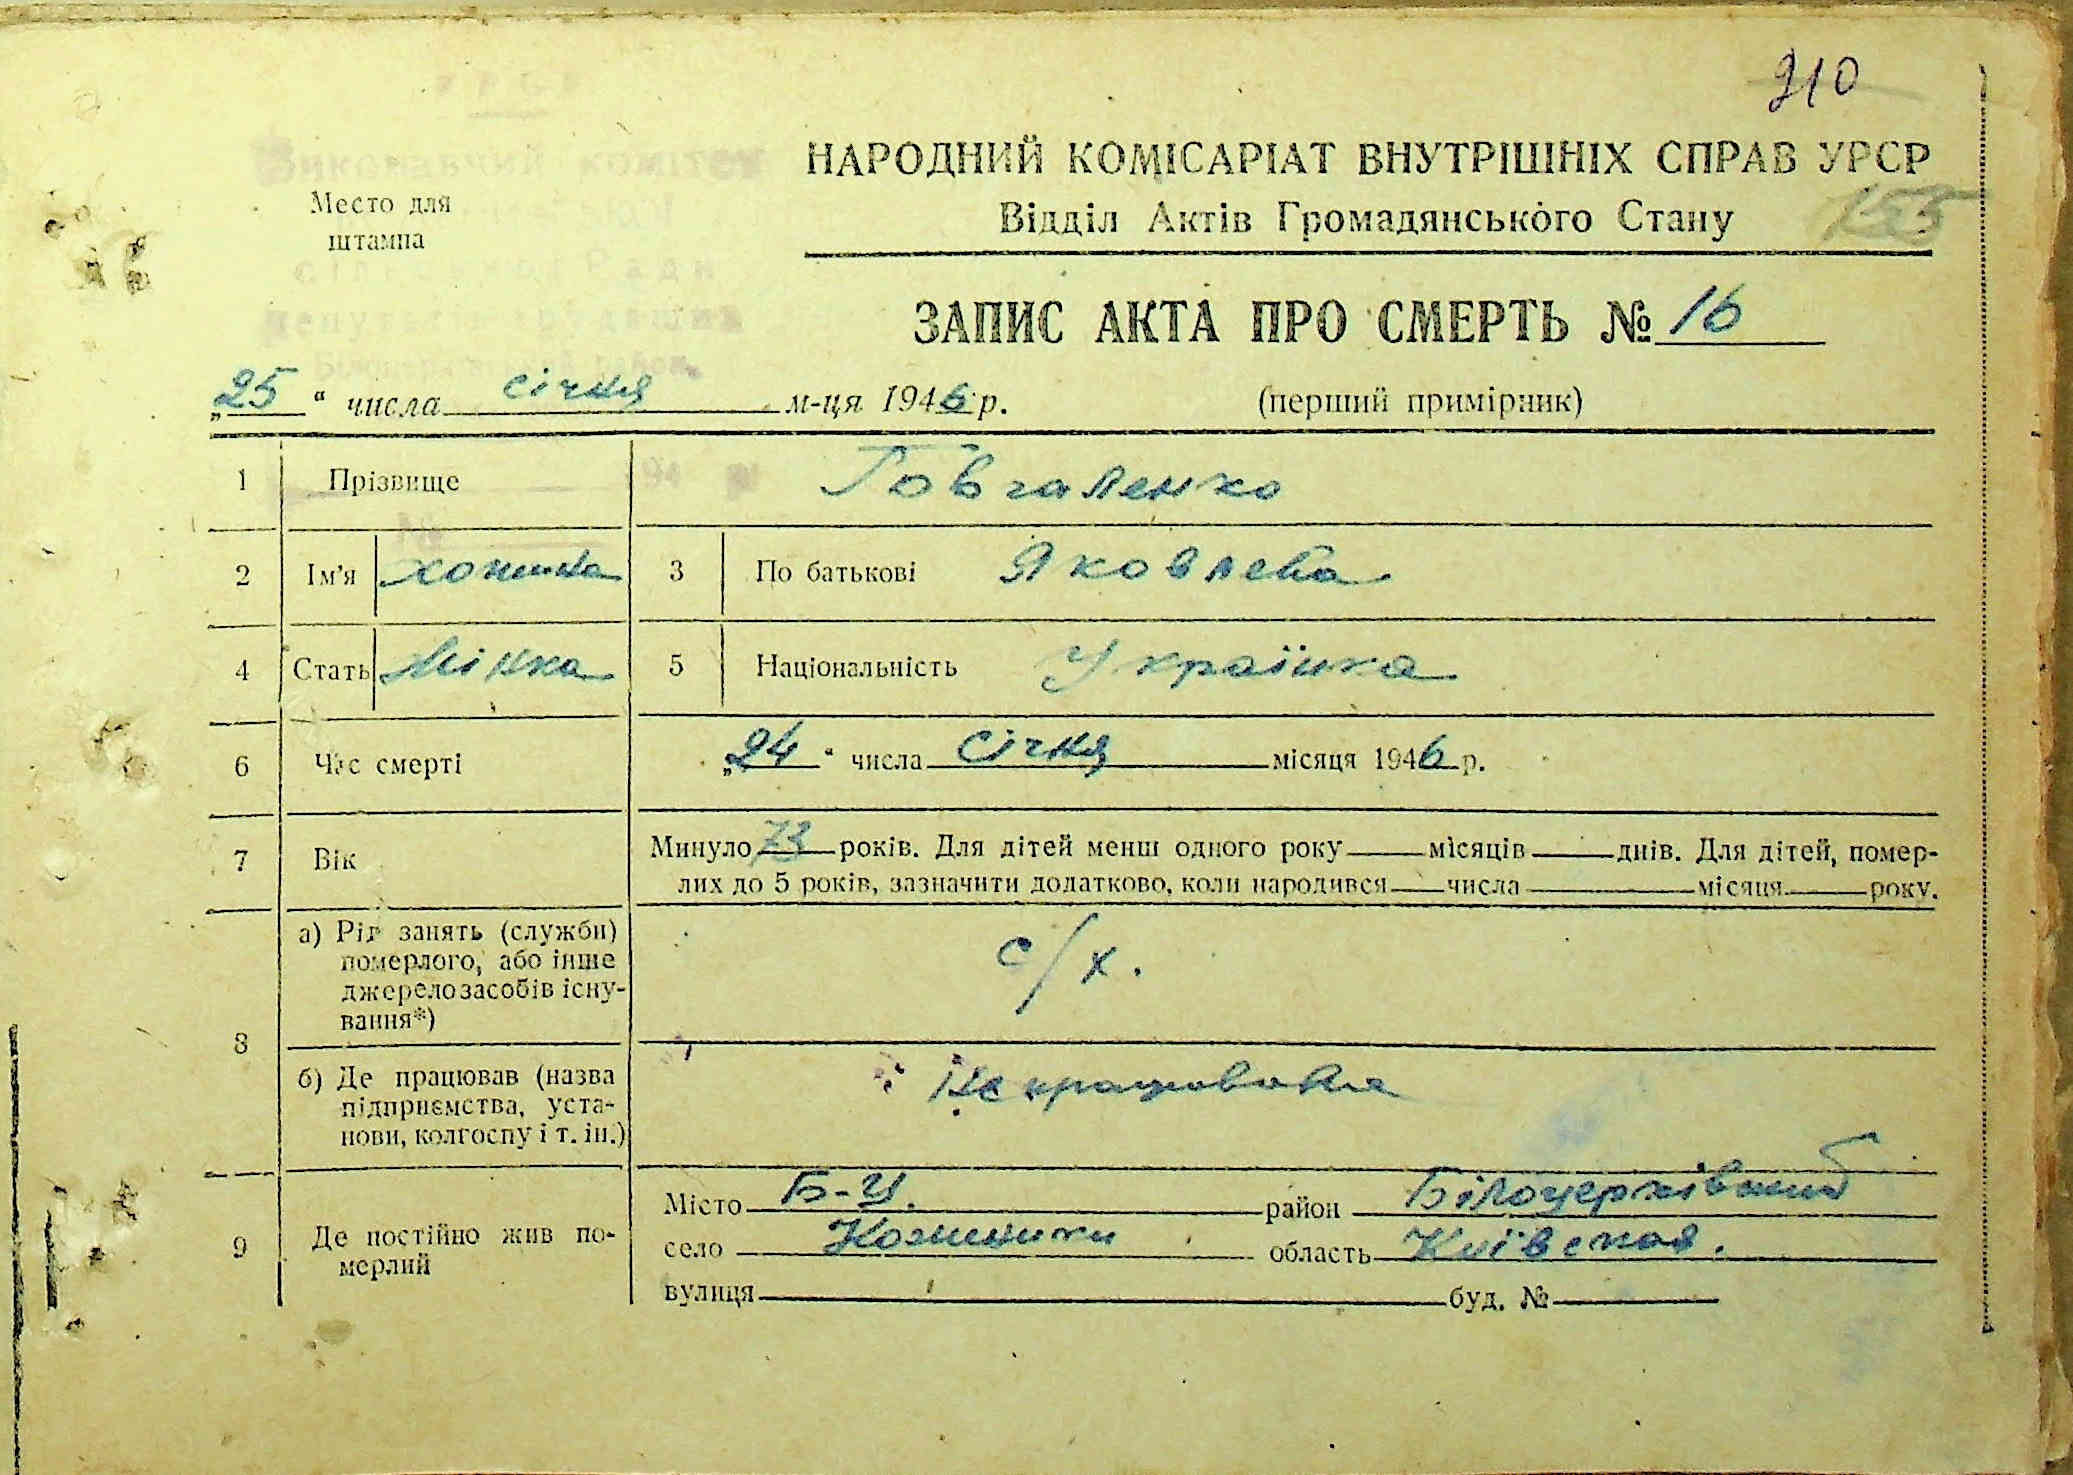 210
НАРОДНИЙ КОМІСАРІАТ ВНУТРІШНІХ СПРАВ УРСР
Место для штампа
Відділ Актів Громадянського Стану
155
ЗАПИС АКТА ПРО СМЕРТЬ № 16
„25“ числа січня м-ця 1946 р. (перший примірник)
1 Прізвище Говгаленко
2 Ім'я 3 По батькові Яковлева
4 Стать Жінка 5 Національність Українка
6 Час смерті „24“ числа Січня місяця 1946 р.
7 Вік Минуло 73 років. Для дітей менш одного року місяців днів. Для дітей, помер-
лих до 5 років, зазначити додатково, коли народився числа місяця року.
8 а) Рід занять (служби)
померлого, або інше
джерело засобів існу-
вання*)
с/х.
б) Де працював (назва
підприємства, уста-
нови, колгоспу і т. ін.)
Не працювала
9 Де постійно жив по-
мерлий
Місто Б-Ц. район Білоцерківський
село область Київская.
вулиця буд. №